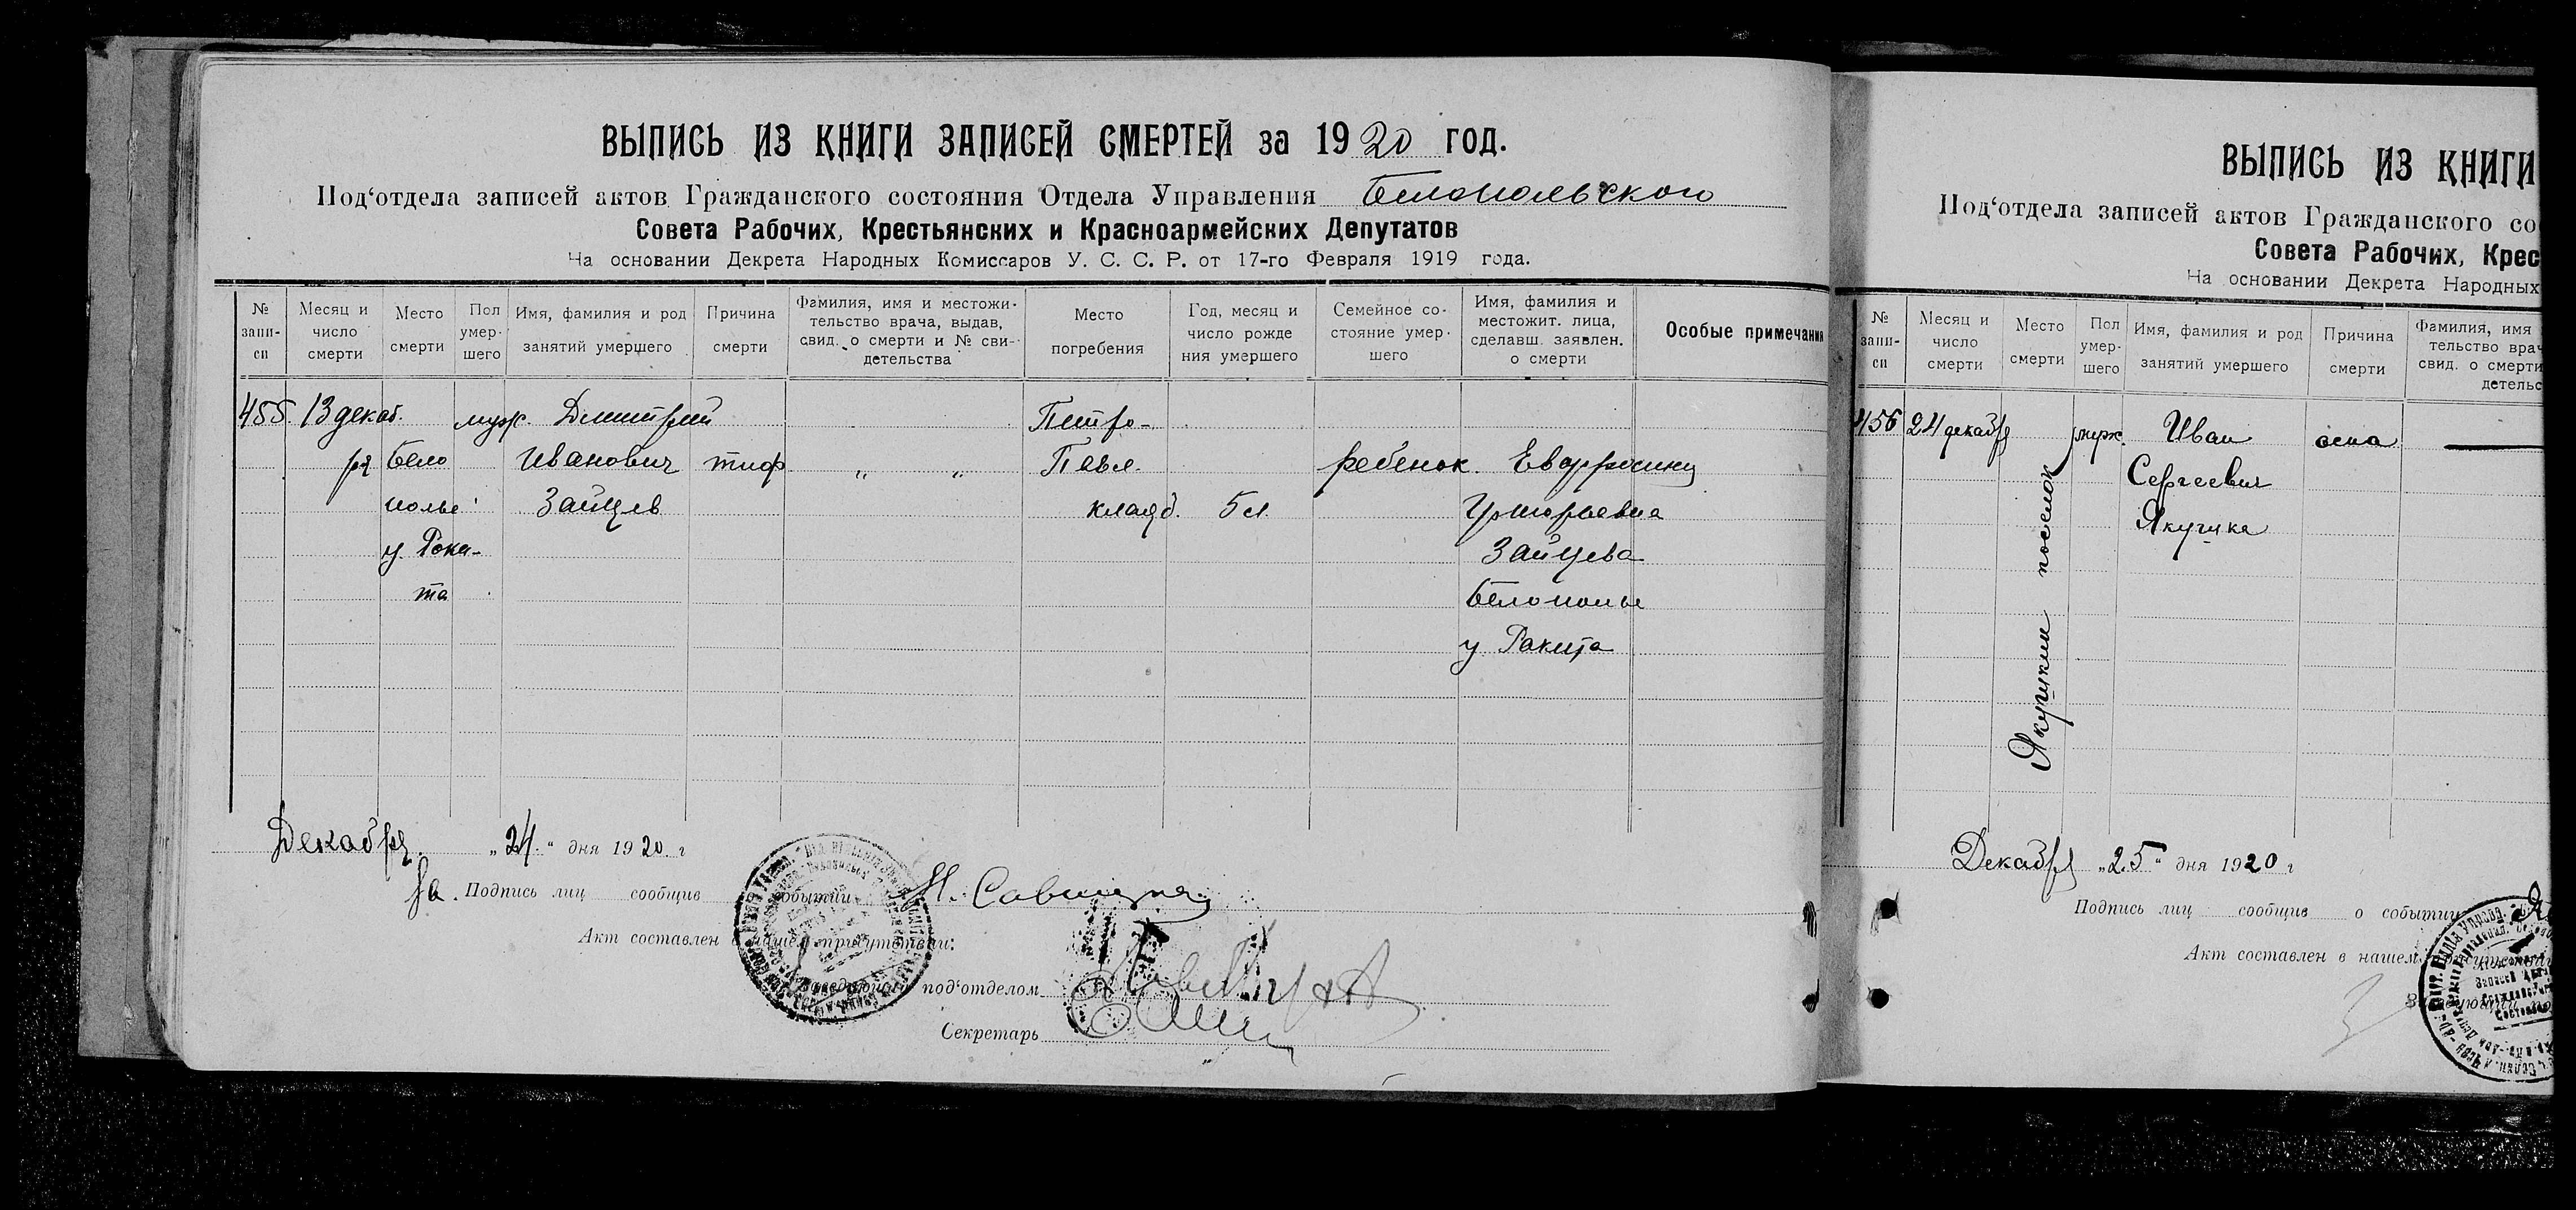 ВЫПИСЬ ИЗ КНИГИ ЗАПИСЕЙ СМЕРТЕЙ за 1920 ГОД.
Под‘отдела записей актов Гражданского состояния Отдела Управления Белопольского
Совета Рабочих, Крестьянских и Красноармейских Депутатов
На основании Декрета Народных Комиссаров У. С. С. Р. от 17-го Февраля 1919 года.
№ запи-си
Месяц и число смерти
Место смерти
Пол умер-шего
Имя, фамилия и род занятий умершего
Причина смерти
Фамилия, имя и местожи-тельство врача, выдав, свид. о смерти и № сви-детельства
Место погребения
Год, месяц и число рожде ния умершего
Семейное со-стояние умер-шего
Имя, фамилия и местожит. лица, сделавш. заявлен. о смерти
Особые примечания
455. 13 декаб. муж. Дмитрий Петро-
ря Бело Иванович тиф „ „ Павл. ребенок. Евфросиния
полье Зайцев кладб. 5 л. Григорьевна
у. Раки- Зайцева
та Белополье
у Ракита
Декабря „24.“ дня 1920 г
За. Подпись лиц сообщив событии
Акт составлен в нашем присутствии:
Заведующий под‘отделом
Секретарь
ВЫПИСЬ ИЗ КНИГИ
Под‘отдела записей актов Гражданского со
Совета Рабочих, Крес
На основании Декрета Народных
№ запи-си
Месяц и число смерти
Место смерти
Пол умер-шего
Имя, фамилия и род занятий умершего
Причина смерти
Фамилия, имя тельство врач свид. о смерти детельс
456 24 декабря муж. Иван оспа
Сергеевич
Якушка
поселок
Декабря „25“ дня 1920 г
Подпись лиц сообщив о событии
Акт составлен в нашем